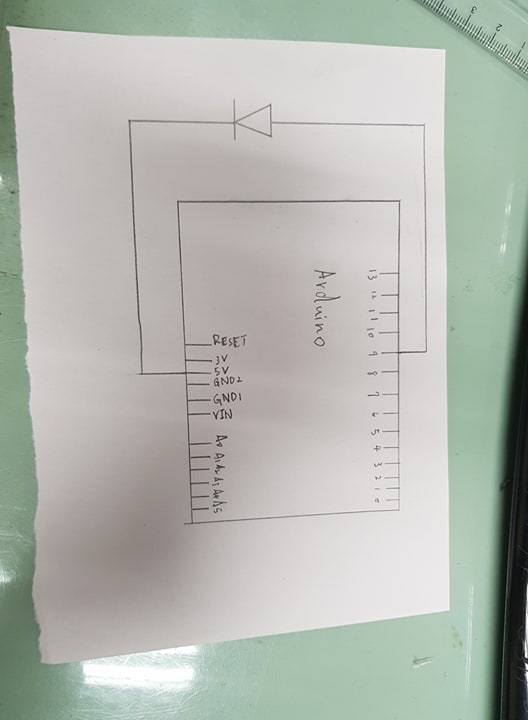 Arduino
13
12
11
10
9
8
7
6
5
4
3
2
1
0
RESET
3V
5V
GND2
GND1
VIN
A0
A1
A2
A3
A4
A5
3
2